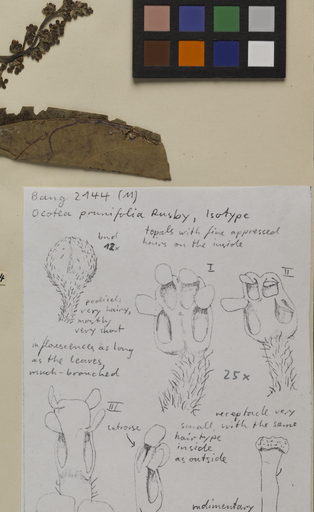 Bang 2144 (M)
Ocotea prunifolia Rusby, Isotype
tepals with fine appressed
hairs on the inside
bud
12x
pedicels
very hairy,
mostly
very short
inflorescences as long
as the leaves,
much-branched
I
II
25x
III
introrse
receptacle very
small with the same
hair type
inside
as outside
rudimentary
4